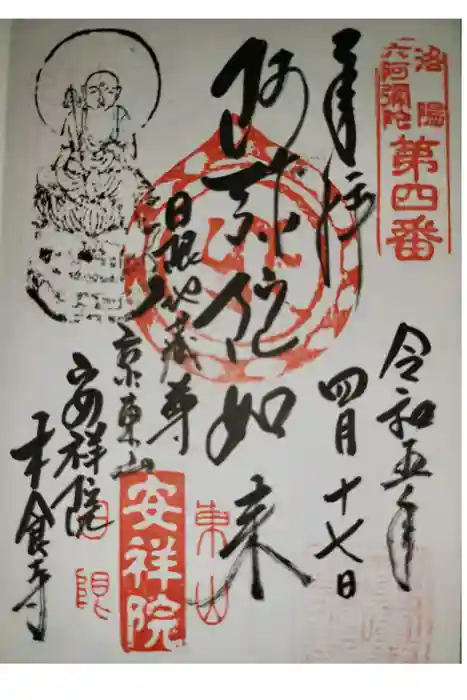 洛陽
六阿彌陀
第四番
奉拝
令和五年
四月十七日
阿弥陀如来
日限地蔵尊
京東山
安祥院
木食寺
東山
安祥院
日限